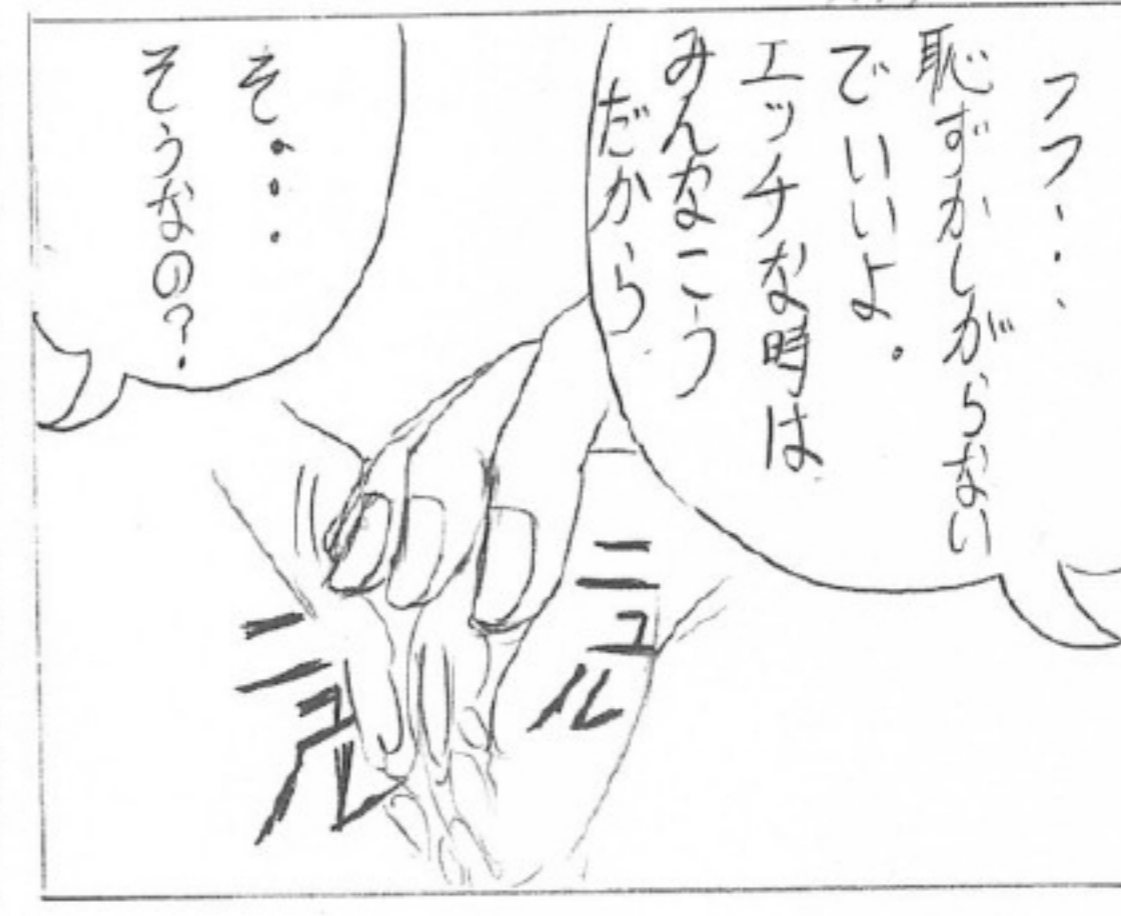 フフ・・・
恥ずかしがらない
でいいよ。
エッチな時は
みんなこう
だから
そ・・・
そうなの?
ニュル
ニュル